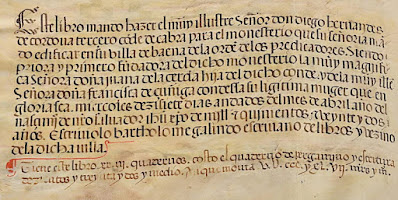 Este libro mando hazer el muy illustre Señor don diego hernandes
de cordoua tercero cõde de cabra para el monesterio que su señoria mã
do edificar en su billa de baena de la ordẽ de los predicadores Siendo
priora y primero fũdador del dicho monesterio la muy magnifi
ca Señora doña juana de la cerda hija del dicho conde y de la muy ille
Señora doña francisca de çuñiga condessa su ligitima muger que en
gloria sea. miercoles dezisiete dias andados del mes de abril año del
de mil & quinientos & treynta y dos
años. Escriuiolo bartholome galindo escriuano de libros y vezino
de la dicha villa
Tiene este libro quaternos. costo el quaterno de pargamino y escritura
y dos y medio. que monta